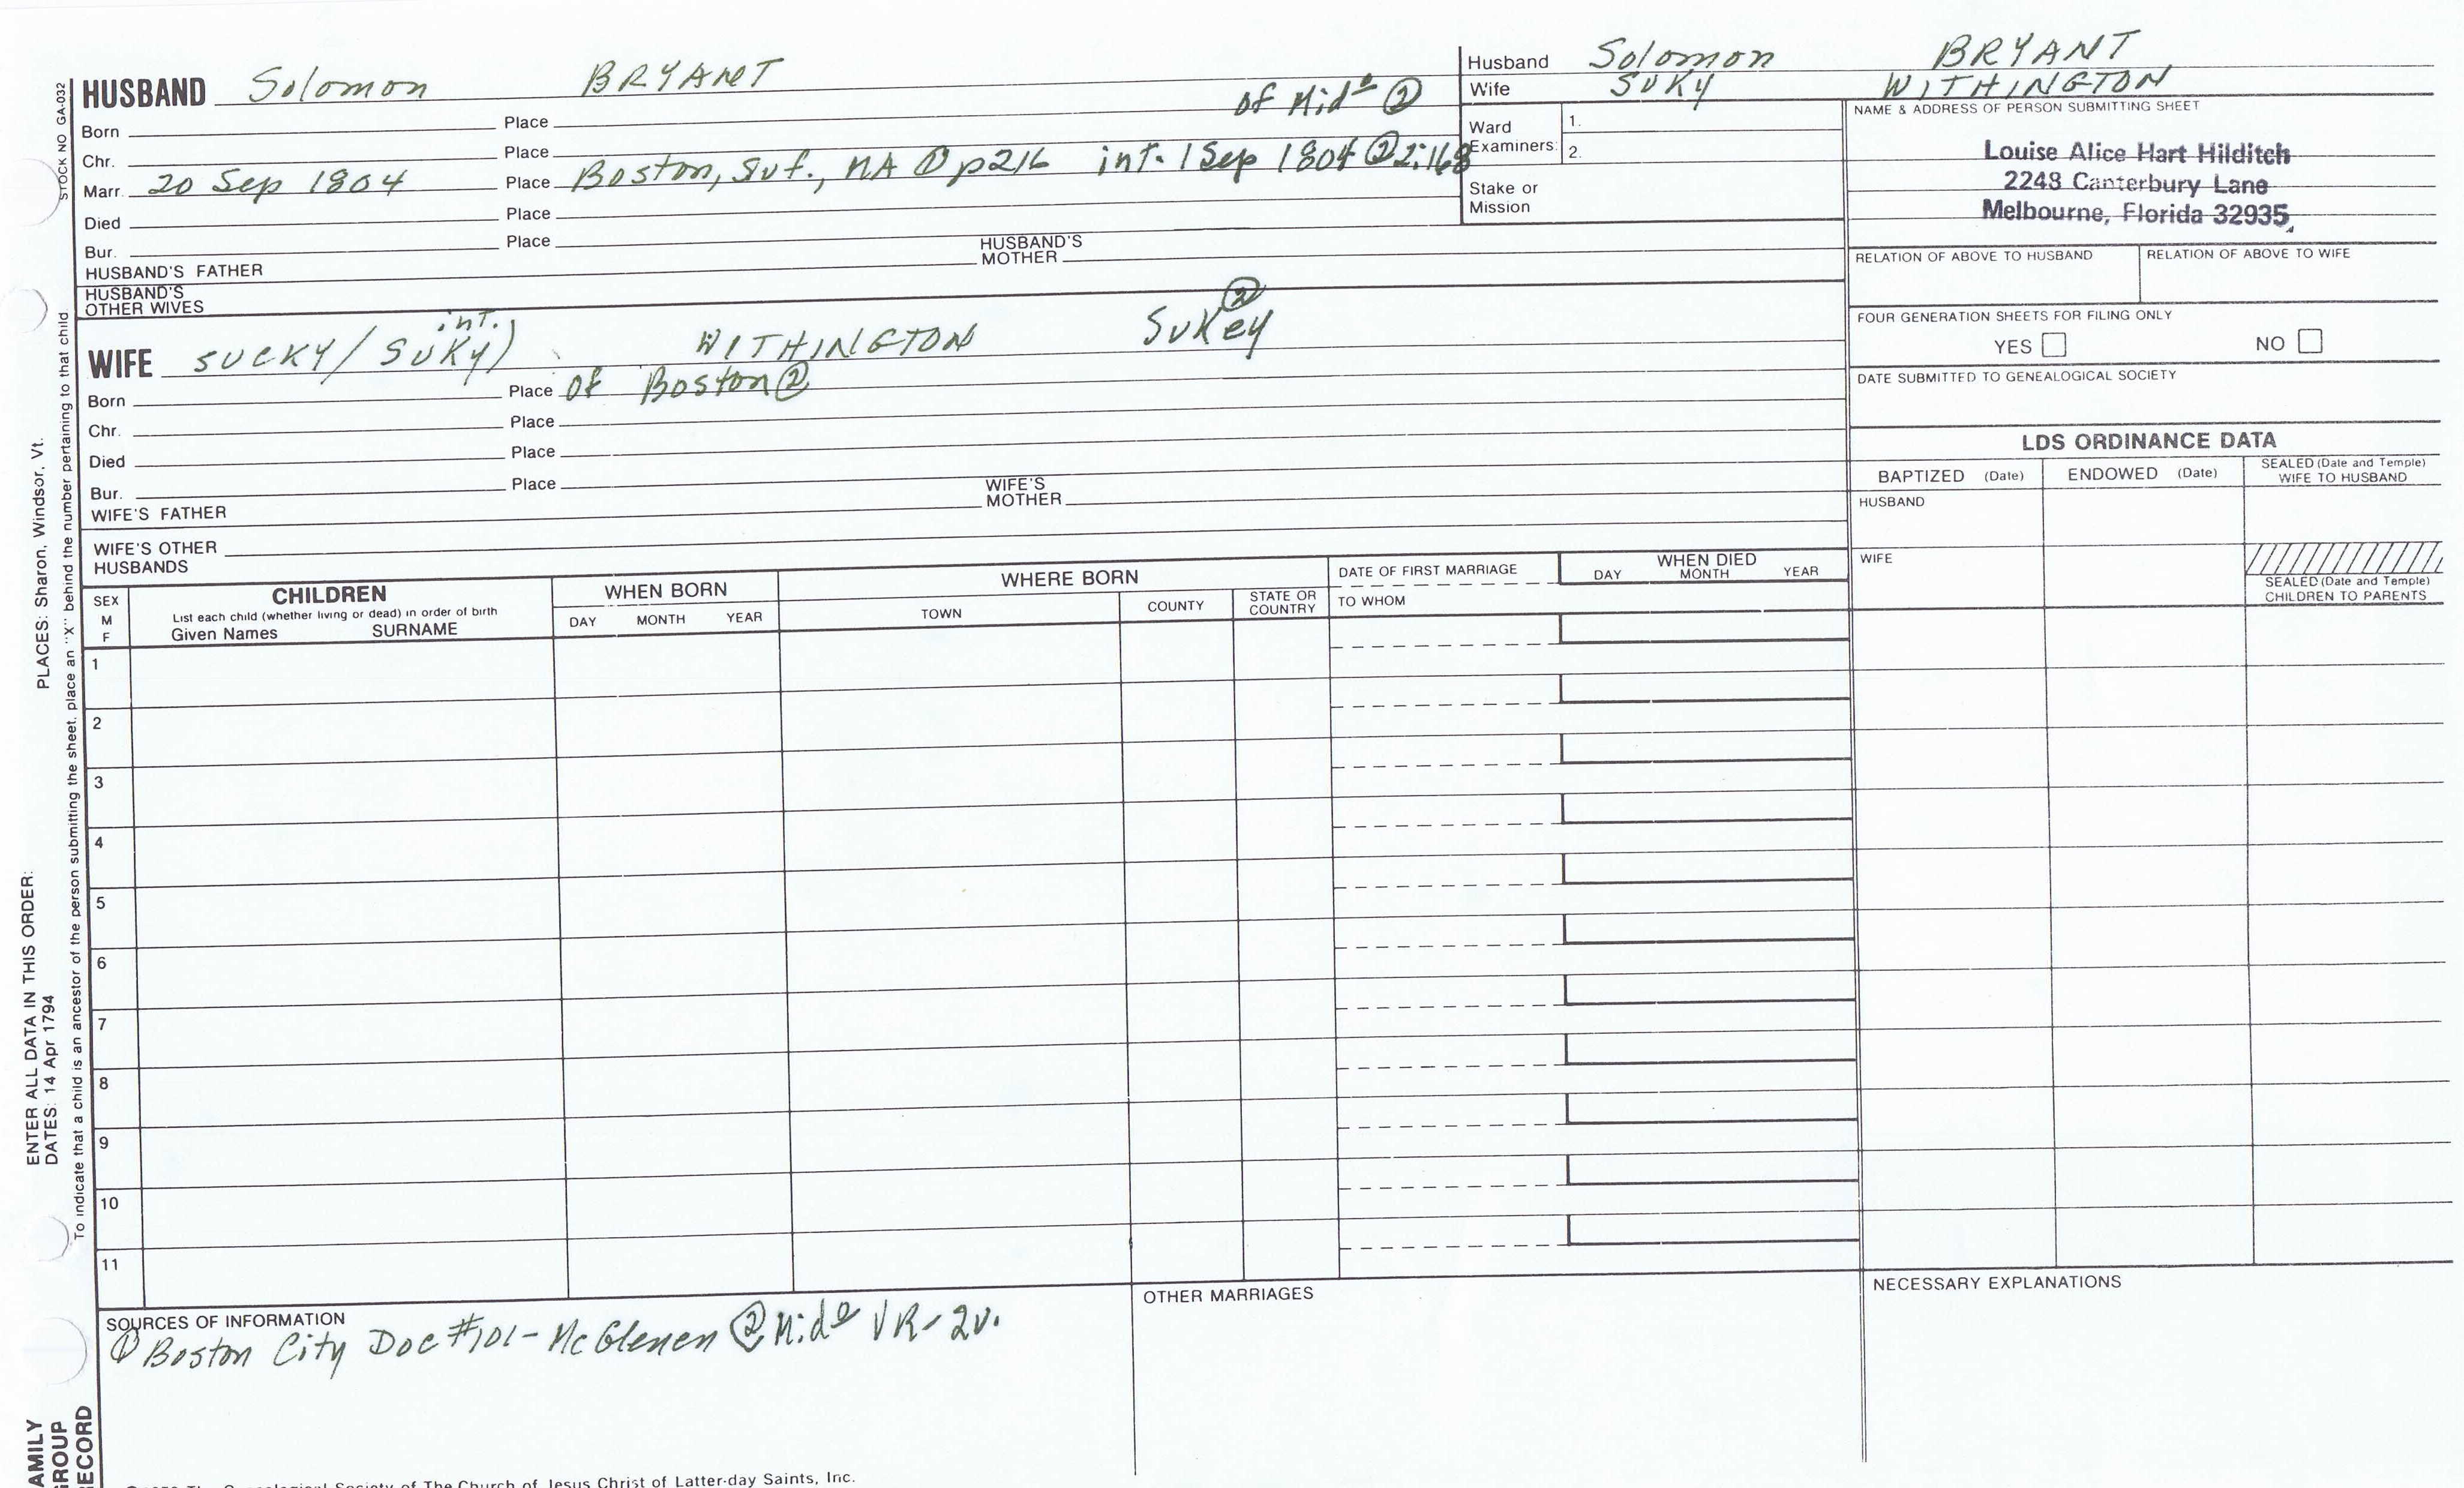 HUSBAND Solomon BRYANT of Mido ②
Born Place
Chr. Place
Marr. 20 Sep 1804 Place Boston, Suf., MA ① p216 int. 1 Sep 1804 ② 2:168
Died Place
Bur. Place
HUSBAND'S FATHER HUSBAND'S MOTHER
HUSBAND'S OTHER WIVES
int. ②
WIFE SUCKY/SUKY) WITHINGTON SUKey
Born Place of Boston ②
Chr. Place
Died Place
Bur. Place
WIFE'S FATHER WIFE'S MOTHER
WIFE'S OTHER HUSBANDS
Husband Solomon BRYANT
Wife SUKY WITHINGTON
Ward Examiners: 1.
2.
Stake or Mission
NAME & ADDRESS OF PERSON SUBMITTING SHEET
Louise Alice Hart Hilditch
2248 Canterbury Lane
Melbourne, Florida 32935
RELATION OF ABOVE TO HUSBAND RELATION OF ABOVE TO WIFE
FOUR GENERATION SHEETS FOR FILING ONLY
YES NO
DATE SUBMITTED TO GENEALOGICAL SOCIETY
LDS ORDINANCE DATA
BAPTIZED (Date) ENDOWED (Date) SEALED (Date and Temple) WIFE TO HUSBAND
HUSBAND
WIFE
SEALED (Date and Temple)
CHILDREN TO PARENTS
SEX M F
CHILDREN
List each child (whether living or dead) in order of birth
Given Names SURNAME
WHEN BORN
DAY MONTH YEAR
WHERE BORN
TOWN COUNTY STATE OR COUNTRY
DATE OF FIRST MARRIAGE
TO WHOM
WHEN DIED
DAY MONTH YEAR
1
2
3
4
5
6
7
8
9
10
11
SOURCES OF INFORMATION
① Boston City Doc #101 - McGlenen ② Mido VR - 2v.
OTHER MARRIAGES
NECESSARY EXPLANATIONS
STOCK NO GA-032
PLACES: Sharon, Windsor, Vt.
ENTER ALL DATA IN THIS ORDER:
DATES: 14 Apr 1794
To indicate that a child is an ancestor of the person submitting the sheet, place an "X" behind the number pertaining to that child
AMILY
GROUP
RECORD
The Genealogical Society of The Church of Jesus Christ of Latter-day Saints, Inc.